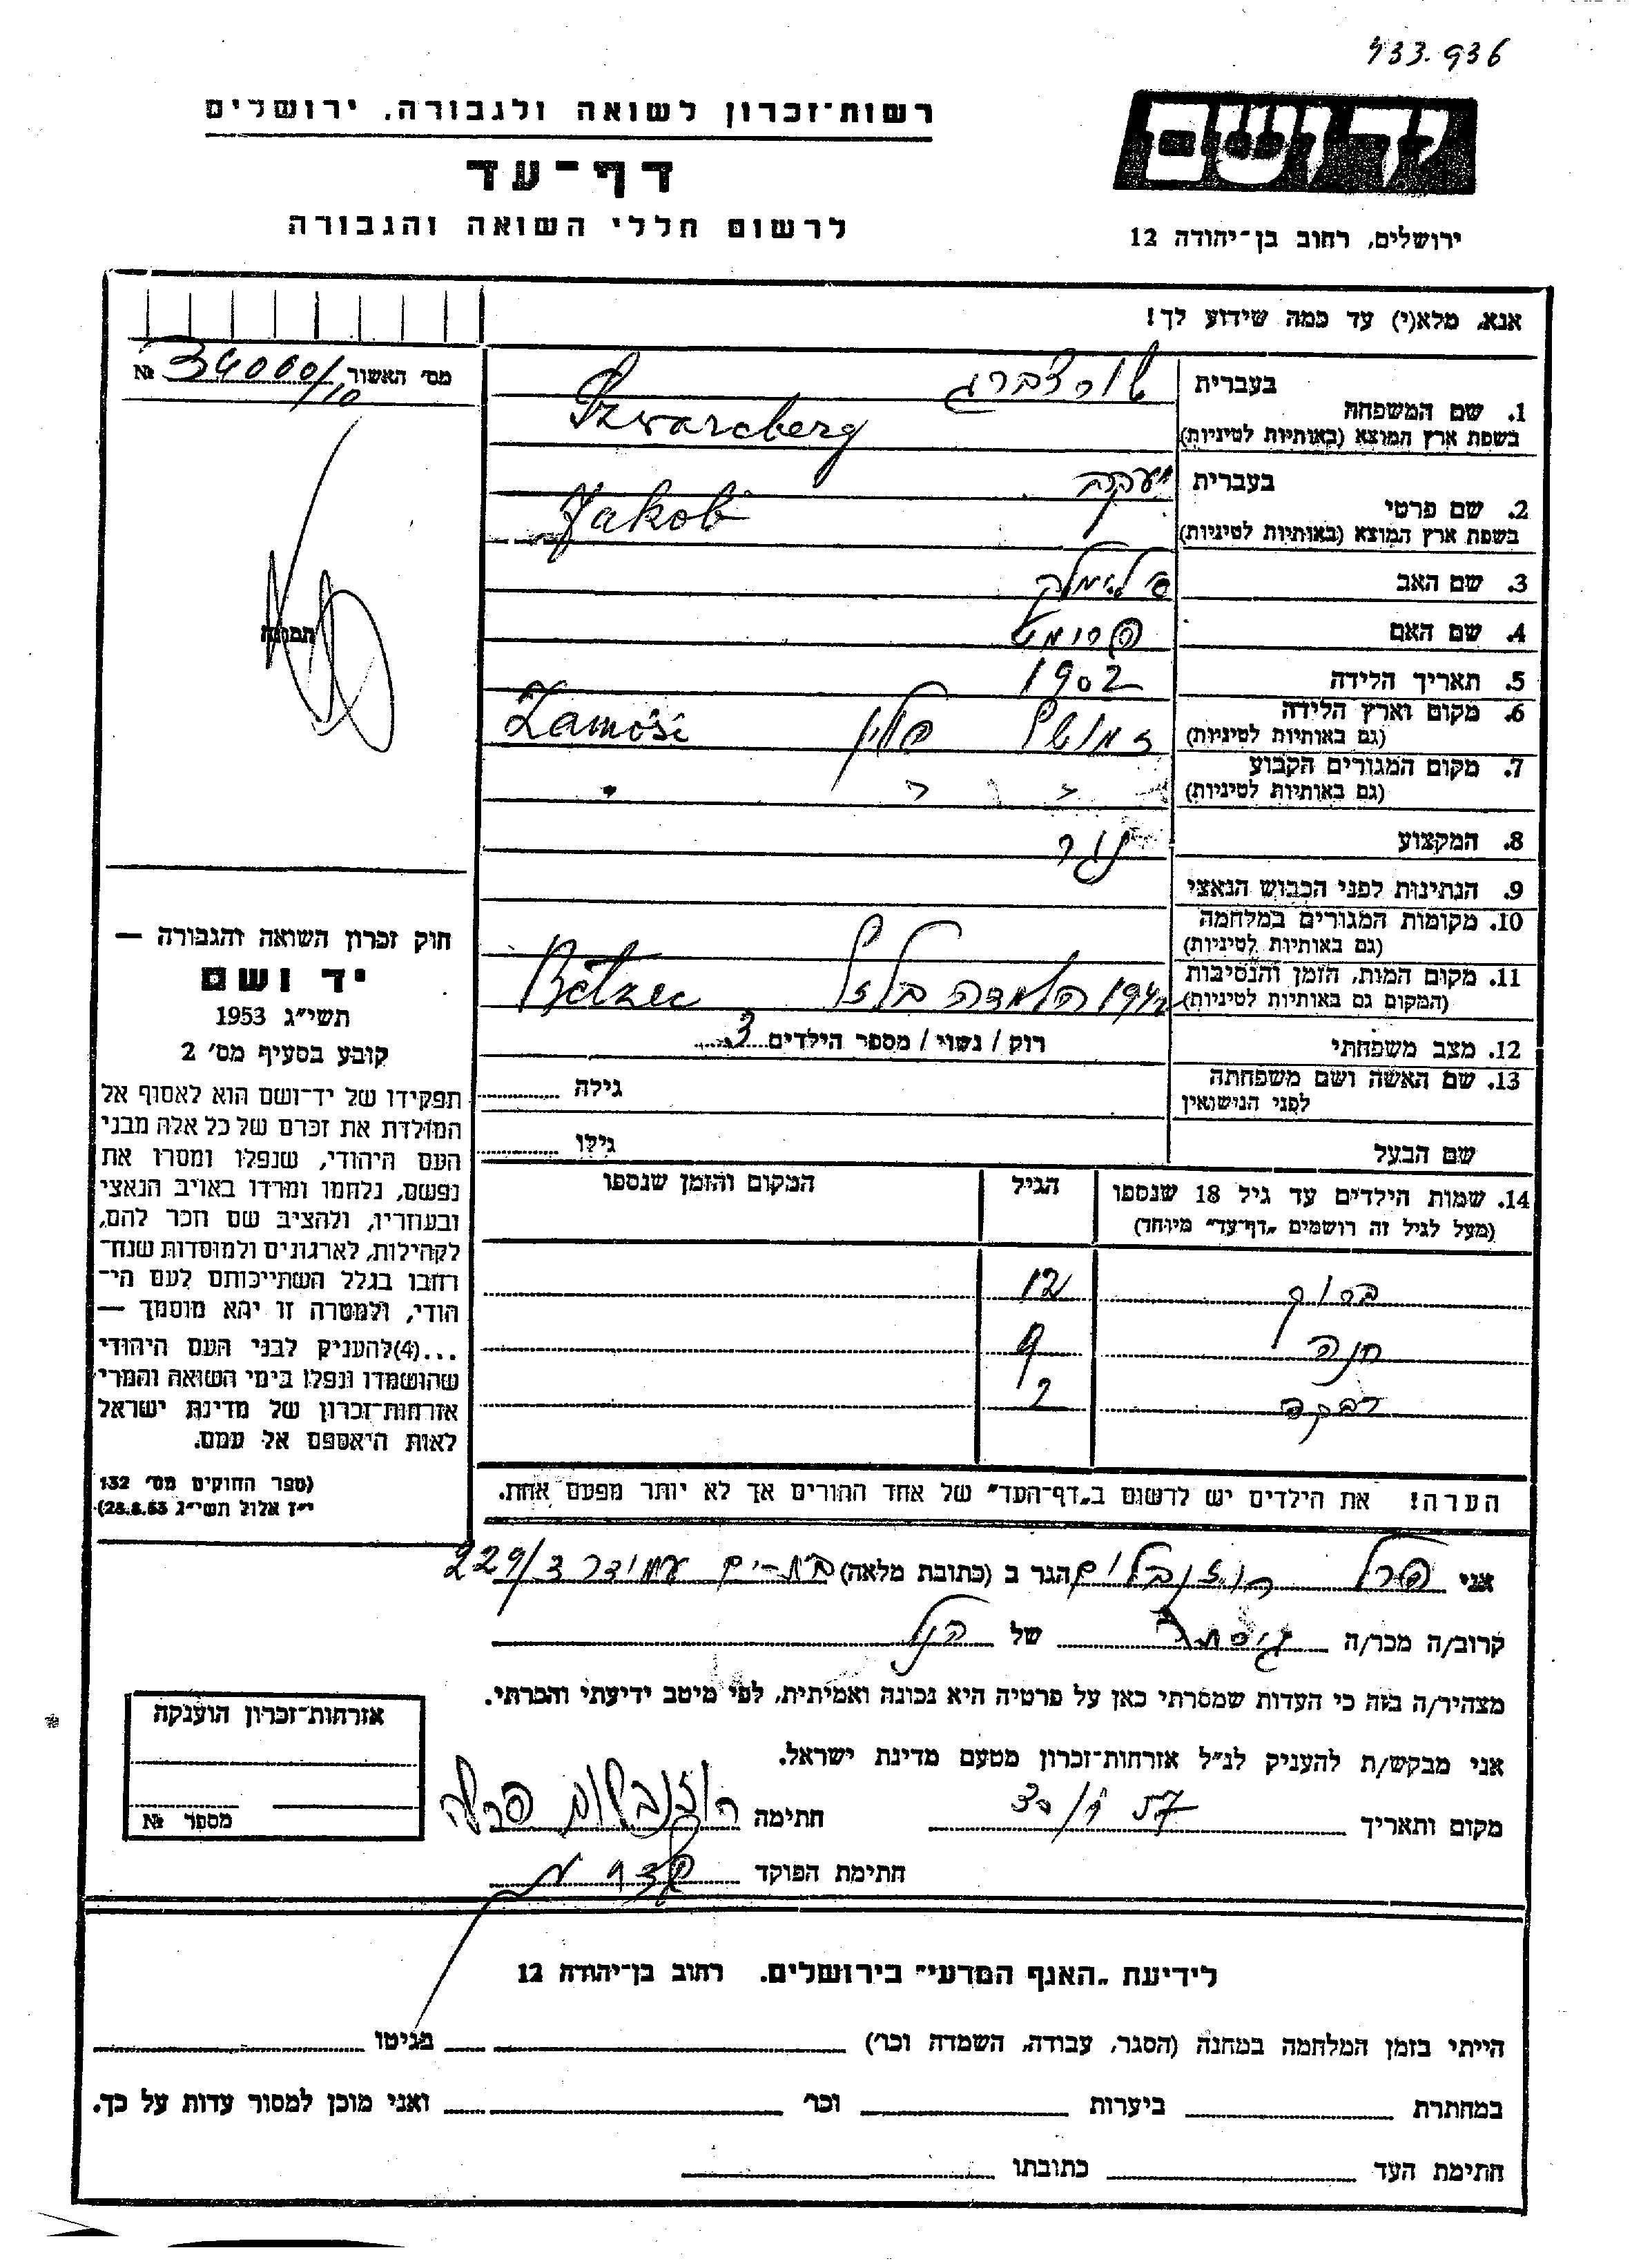 433.936
רשות־זכרון לשואה ולגבורה, ירושלים
דף־עד
לרשום חללי השואה והגבורה
יד ושם
ירושלים, רחוב בן־יהודה 12
אנא, מלא(י) עד כמה שידוע לך!
מס׳ האשור 34060/10 №
תמונה
1. שם המשפחה
בעברית שורצברג
בשפת ארץ המוצא (באותיות לטיניות) Szwarcberg
2. שם פרטי
בעברית יעקב
בשפת ארץ המוצא (באותיות לטיניות) Jakob
3. שם האב אלימלך
4. שם האם פרומט
5. תאריך הלידה 1902
6. מקום וארץ הלידה
(גם באותיות לטיניות) זמושץ פולין Zamość
7. מקום המגורים הקבוע
(גם באותיות לטיניות) " " "
8. המקצוע נגר
9. הנתינות לפני הכבוש הנאצי
10. מקומות המגורים במלחמה
(גם באותיות לטיניות)
11. מקום המות, הזמן והנסיבות
(המקום גם באותיות לטיניות) 1942 השמדה בלזץ Bełzec
12. מצב משפחתי רוק / נשוי / מספר הילדים 3
13. שם האשה ושם משפחתה
לפני הנישואין גילה
שם הבעל גילו
14. שמות הילדים עד גיל 18 שנספו הגיל המקום והזמן שנספו
(מעל לגיל זה רושמים „דף־עד״ מיוחד)
ברוך 12
חנה 9
רבקה 2
הערה! את הילדים יש לרשום ב„דף־העד״ של אחד ההורים אך לא יותר מפעם אחת.
חוק זכרון השואה והגבורה —
יד ושם
תשי״ג 1953
קובע בסעיף מס׳ 2
תפקידו של יד־ושם הוא לאסוף אל
המולדת את זכרם של כל אלה מבני
העם היהודי, שנפלו ומסרו את
נפשם, נלחמו ומרדו באויב הנאצי
ובעוזריו, ולהציב שם וזכר להם,
לקהילות, לארגונים ולמוסדות שנח־
רחבו בגלל השתייכותם לעם הי־
הודי, ולמטרה זו יהא מוסמך —
...(4)להעניק לבני העם היהודי
שהושמדו ונפלו בימי השואה והמרי
אזרחות־זכרון של מדינת ישראל
לאות היאספם אל עמם.
(ספר החוקים מס׳ 132
י״ז אלול תשי״ג 28.8.53)
אני פרל רוזנבלום הגר ב (כתובת מלאה) בת־ים עמידר 229/3
קרוב/ה מכר/ה גיסתו של הנ״ל
מצהיר/ה בזה כי העדות שמסרתי כאן על פרטיה היא נכונה ואמיתית, לפי מיטב ידיעתי והכרתי.
אני מבקש/ת להעניק לנ״ל אזרחות־זכרון מטעם מדינת ישראל.
מקום ותאריך חתימה רוזנבלום פרלה
חתימת הפוקד
אזרחות־זכרון הוענקה
מספר №
לידיעת „האגף המדעי״ בירושלים. רחוב בן־יהודה 12
הייתי בזמן המלחמה במחנה (הסגר, עבודה, השמדה וכו׳) בגיטו
במחתרת ביערות וכו׳ ואני מוכן למסור עדות על כך.
חתימת העד כתובתו